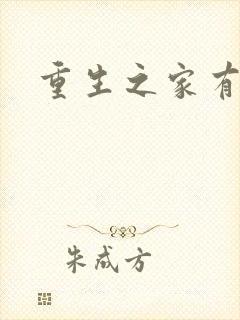 重生之家有
朱成方